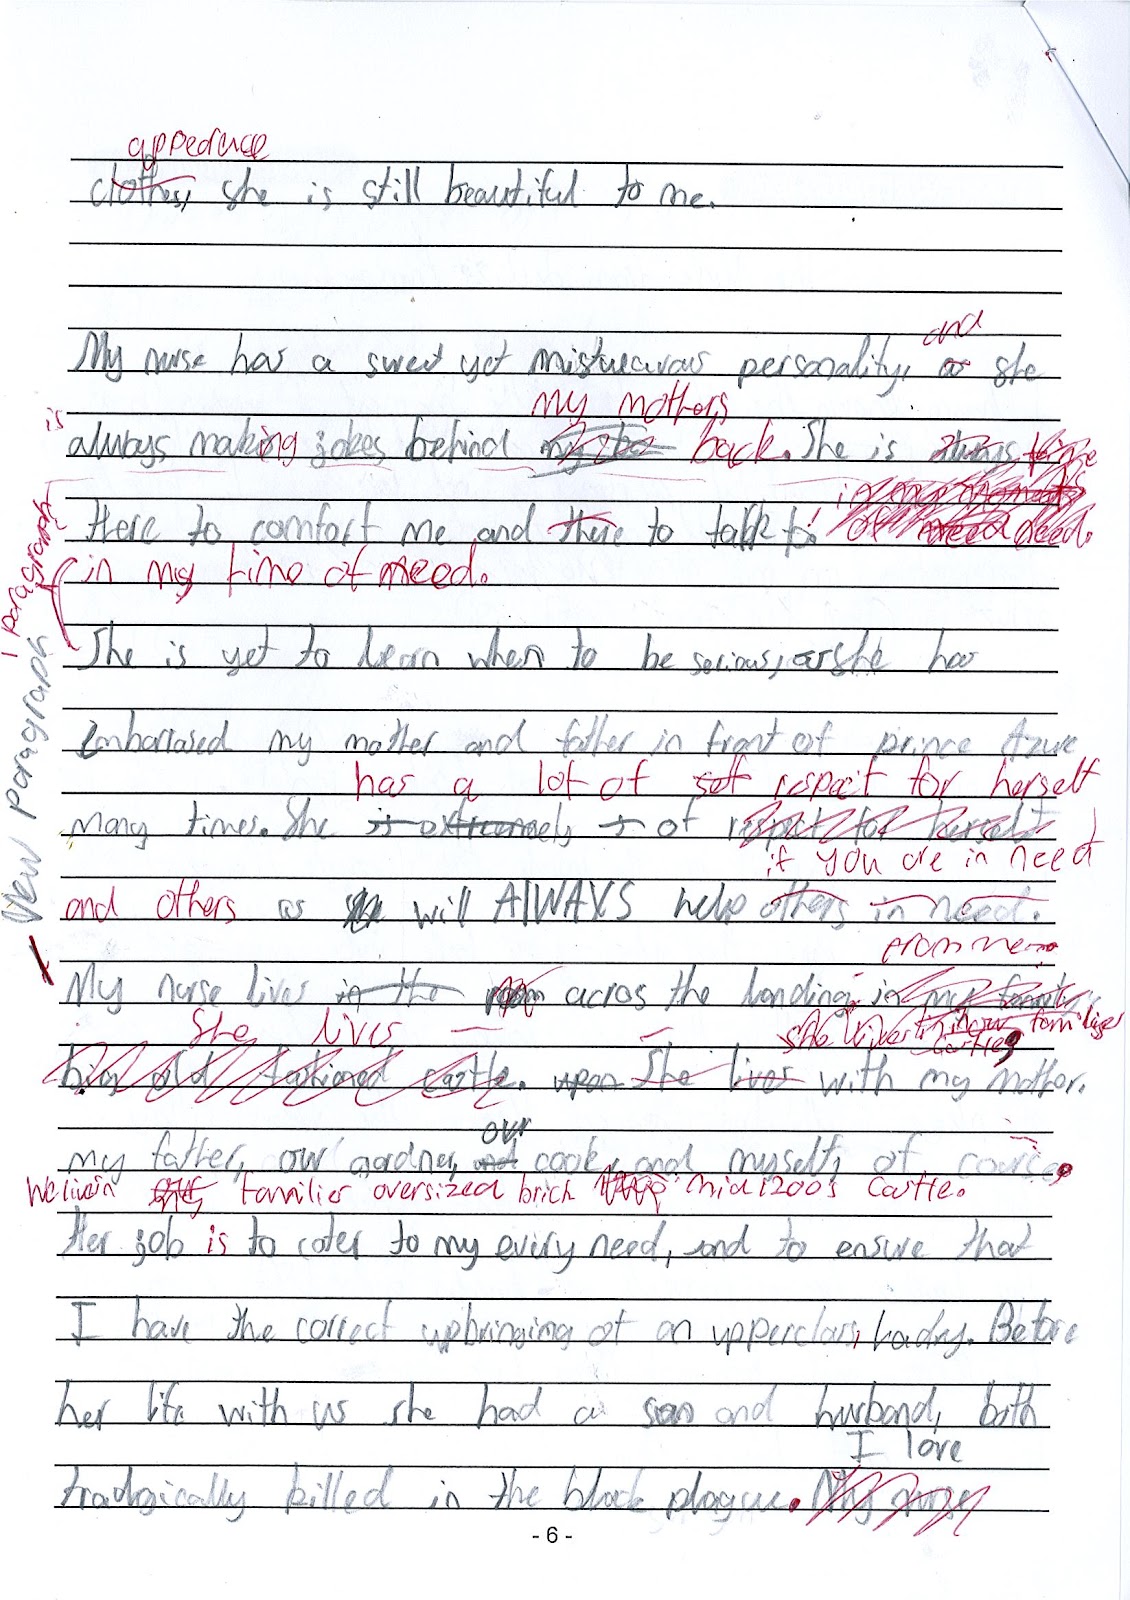 appearuce
clothes, she is still beautiful to me.
and
My nurse has a sweet yet mistuearous personality, as she
my mothers
is
always making jokes behind back. She is
in my moments
Here to comfort me and there to talk to! of need need.
in my time of need.
1 paragraph
New Paragraph
She is yet to learn when to be serious, as she has
Embarrased my mother and father in front of prince Azure
has a lot of respect for herself
many times. She is extreemely of respect for herself
if you are in need
and others as will AlWAYS help others in need.
from me
My nurse lives in the room acros the landing in my family
She lives
she lives in our families castle,
big old fashioned castle. upon She lives with my mother.
our
my father, our gardner, and cook, and myself, of course,
We live in families oversized brick mid 1200s Castle.
Her job is to cater to my every need, and to ensure that
I have the correct upbringing of an upperclass, Loadny. Before
her life with us she had a son and husband, both
I love
tradgically killed in the black plague. My nurse
- 6 -